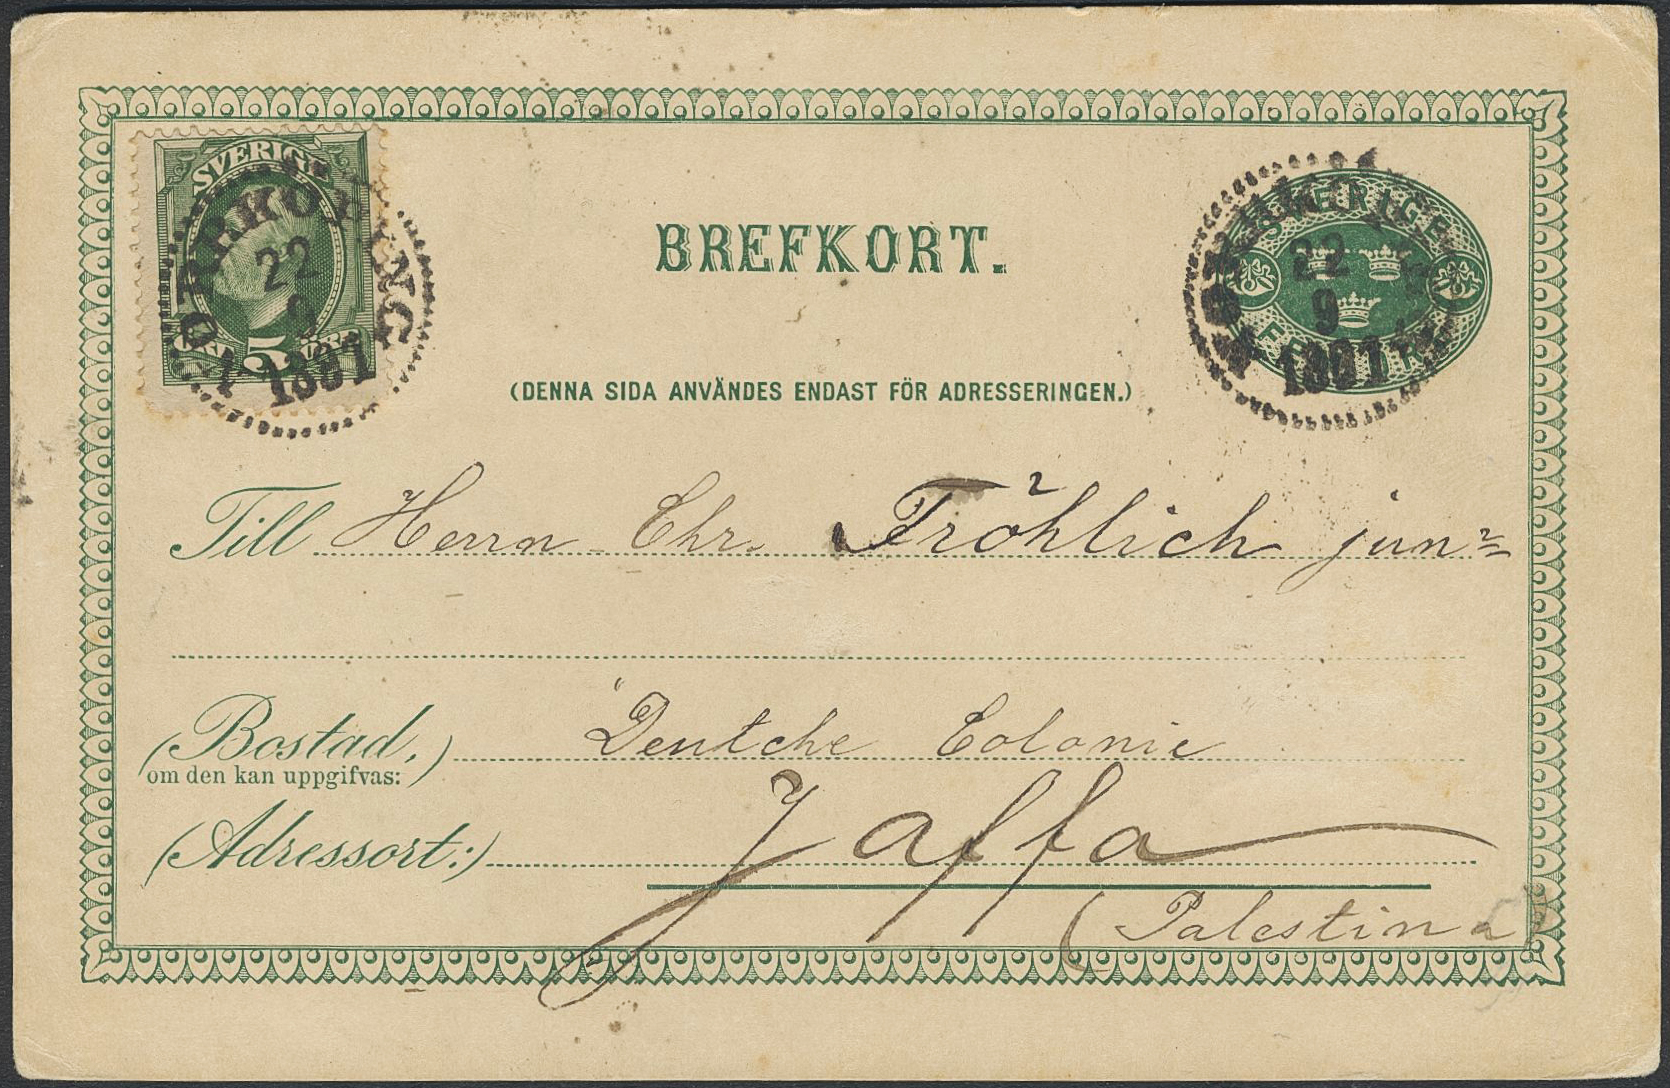 SVERIGE
5
NORRKÖPING
22
9
1891
BREFKORT.
SVERIGE
22
9
1891
(DENNA SIDA ANVÄNDES ENDAST FÖR ADRESSERINGEN.)
Till Herrn Chr. Fröhlich junr
(Bostad,) Deutche Colonie
om den kan uppgifvas:
(Adressort:) Jaffa
(Palestina)